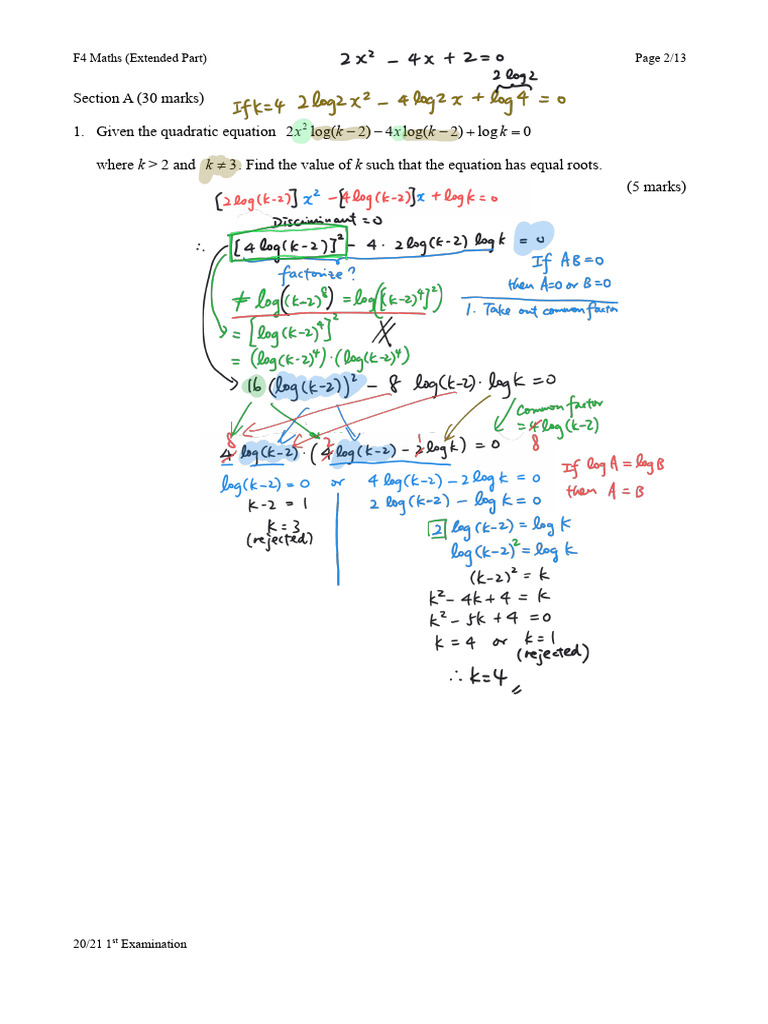 F4 Maths (Extended Part)
2x² - 4x + 2 = 0
Page 2/13
2 log 2
Section A (30 marks)
If k=4 2 log 2 x² - 4 log 2 x + log 4 = 0
1. Given the quadratic equation 2x² log(k − 2) − 4x log(k − 2) + log k = 0
where k > 2 and k ≠ 3. Find the value of k such that the equation has equal roots.
(5 marks)
[2 log(k-2)] x² - [4 log(k-2)] x + log k = 0
Discriminant = 0
∴ [4 log(k-2)]² - 4 · 2 log(k-2) log k = 0
If AB=0
then A=0 or B=0
factorize?
1. Take out common factor
≠ log((k-2)⁸) = log([(k-2)⁴]²)
= [log(k-2)⁴]²
= (log(k-2)⁴) · (log(k-2)⁴)
16 (log(k-2))² - 8 log(k-2) · log k = 0
common factor
= 4 log(k-2)
8
8 2 1
4 log(k-2) · (4 log(k-2) - 2 log k) = 0
If log A = log B
then A = B
log(k-2) = 0 or 4 log(k-2) - 2 log k = 0
k-2 = 1 2 log(k-2) - log k = 0
k = 3 2 log(k-2) = log k
(rejected) log(k-2)² = log k
(k-2)² = k
k² - 4k + 4 = k
k² - 5k + 4 = 0
k = 4 or k = 1
(rejected)
∴ k = 4
20/21 1st Examination